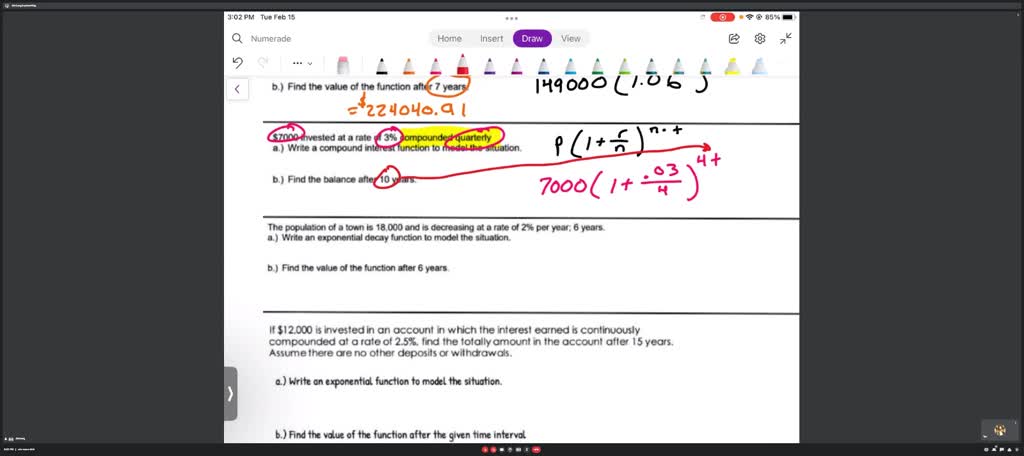 3:02 PM Tue Feb 15
85%
Numerade
Home Insert Draw View
b.) Find the value of the function after 7 years.
149000 (1.06)
= $224040.91
$7000 invested at a rate of 3% compounded quarterly
a.) Write a compound interest function to model the situation.
P(1+r/n)^n.t
b.) Find the balance after 10 years.
7000(1+.03/4)^4t
The population of a town is 18,000 and is decreasing at a rate of 2% per year; 6 years.
a.) Write an exponential decay function to model the situation.
b.) Find the value of the function after 6 years.
If $12,000 is invested in an account in which the interest earned is continuously
compounded at a rate of 2.5%, find the totally amount in the account after 15 years.
Assume there are no other deposits or withdrawals.
a.) Write an exponential function to model the situation.
b.) Find the value of the function after the given time interval